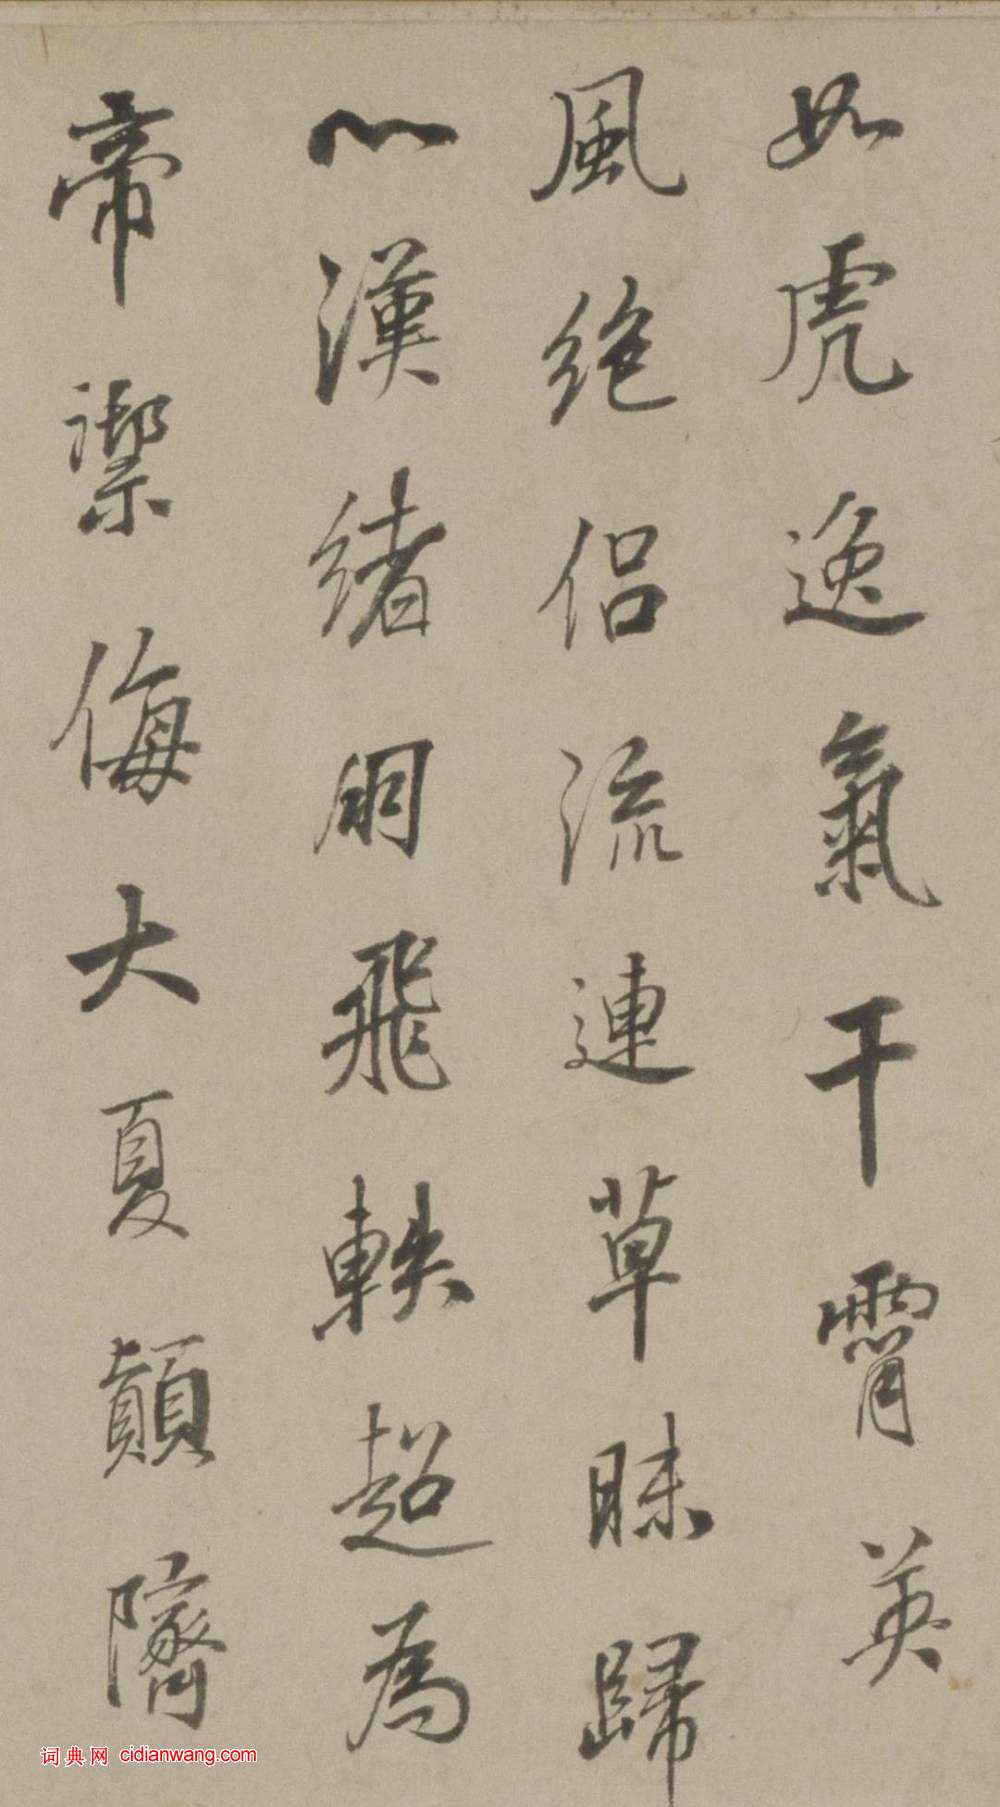 如虎逸氣干霄英
風絕侶流連草昧歸
心漢緒羽飛軼超為
帝禦侮大夏顛隮
词典网 cidianwang.com